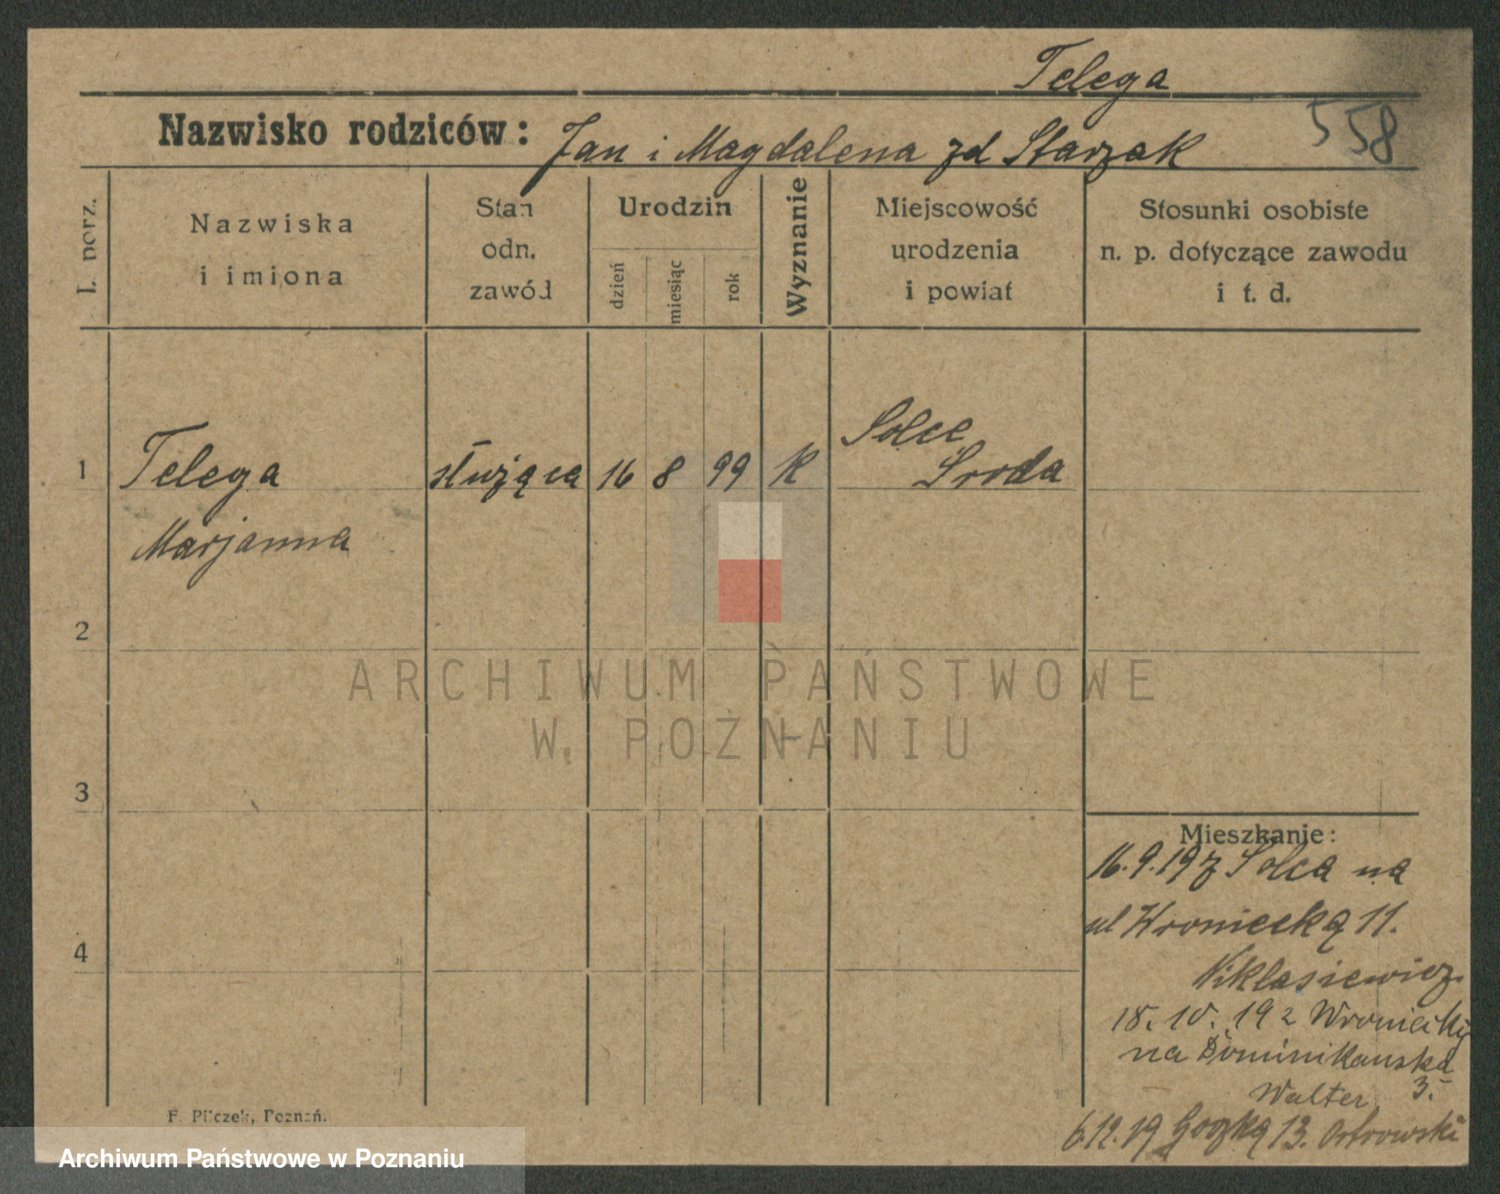 Telega
Nazwisko rodziców: Jan i Magdalena zd Starzak
558
L. porz.
Nazwiska
i imiona
Stan
odn.
zawód
Urodzin
dzień
miesiąc
rok
Wyznanie
Miejscowość
urodzenia
i powiat
Stosunki osobiste
n. p. dotyczące zawodu
i t. d.
1
Telega
Marjanna
służąca
16
8
99
K
Solec
Środa
2
ARCHIWUM PAŃSTWOWE
W POZNANIU
3
4
Mieszkanie:
16.9.19 z Solca na
ul Wroniecką 11.
Niklasiewicz.
18.10.19 z Wronieckiej
na Dominikańską
Walter 3.
6.12.19 13. Ostrowski
F. Pilczek, Poznań.
Archiwum Państwowe w Poznaniu